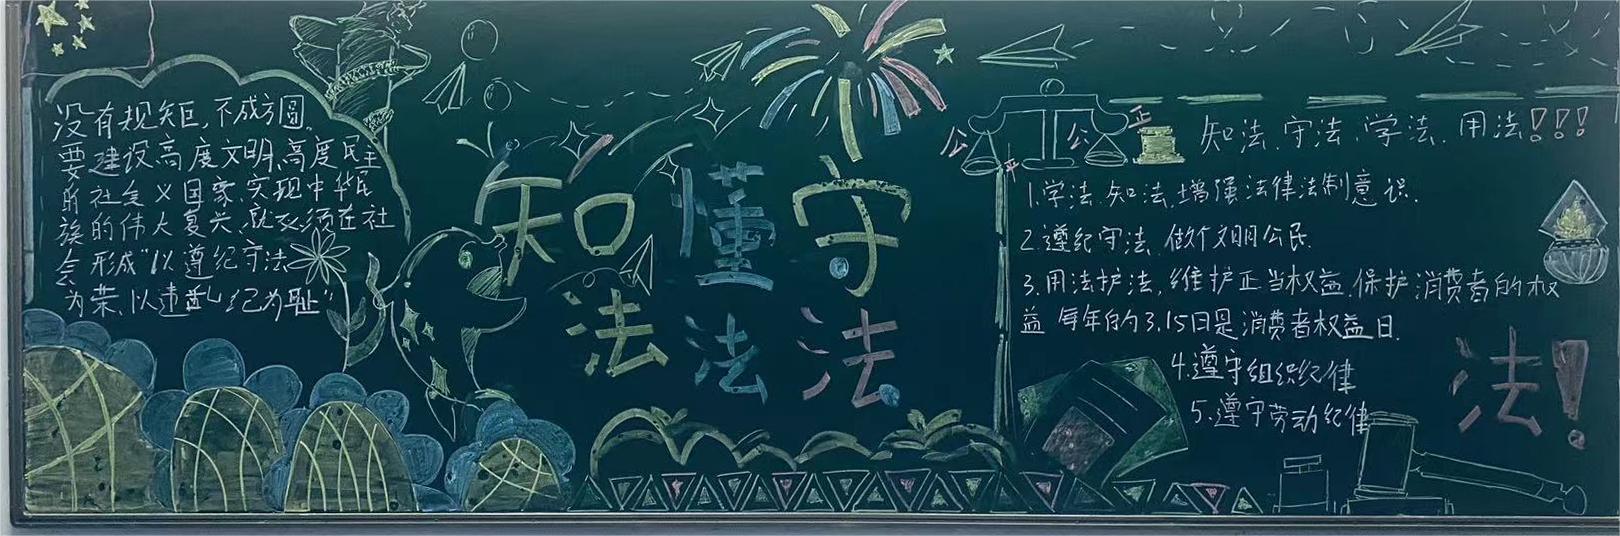 没有规矩,不成方圆。
要建设高度文明,高度民主
的社会义国家,实现中华民
族的伟大复兴,就必须在社
会形成“以遵纪守法
为荣,以违乱纪为耻”
知 懂 守
法 法 法
公 正 公 正
知法、守法、学法、用法!!!
1.学法、知法,增强法律法制意识.
2.遵纪守法,做个文明公民.
3.用法护法,维护正当权益.保护消费者的权
益 每年的3.15日是消费者权益日.
4.遵守组织纪律
5.遵守劳动纪律
法!